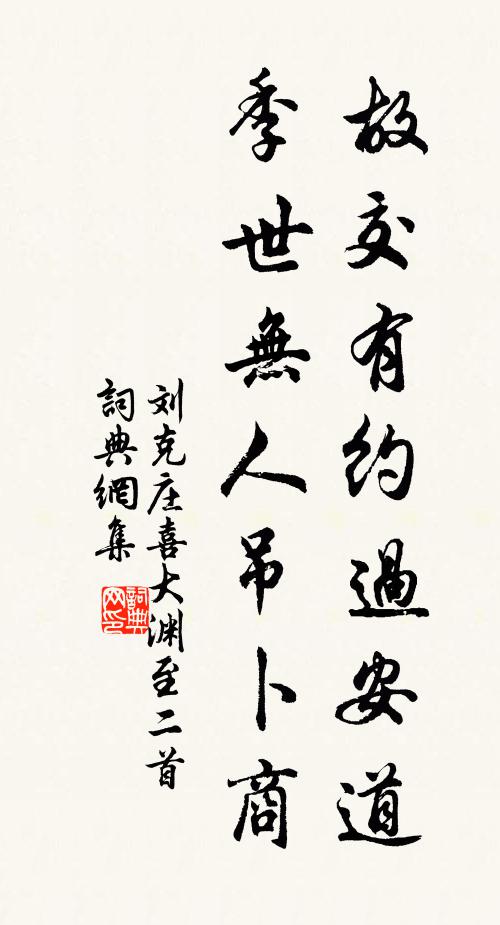 故交有约過安道
季世無人吊卜商
刘克庄喜大渊至二首
詞典網集
詞典网印